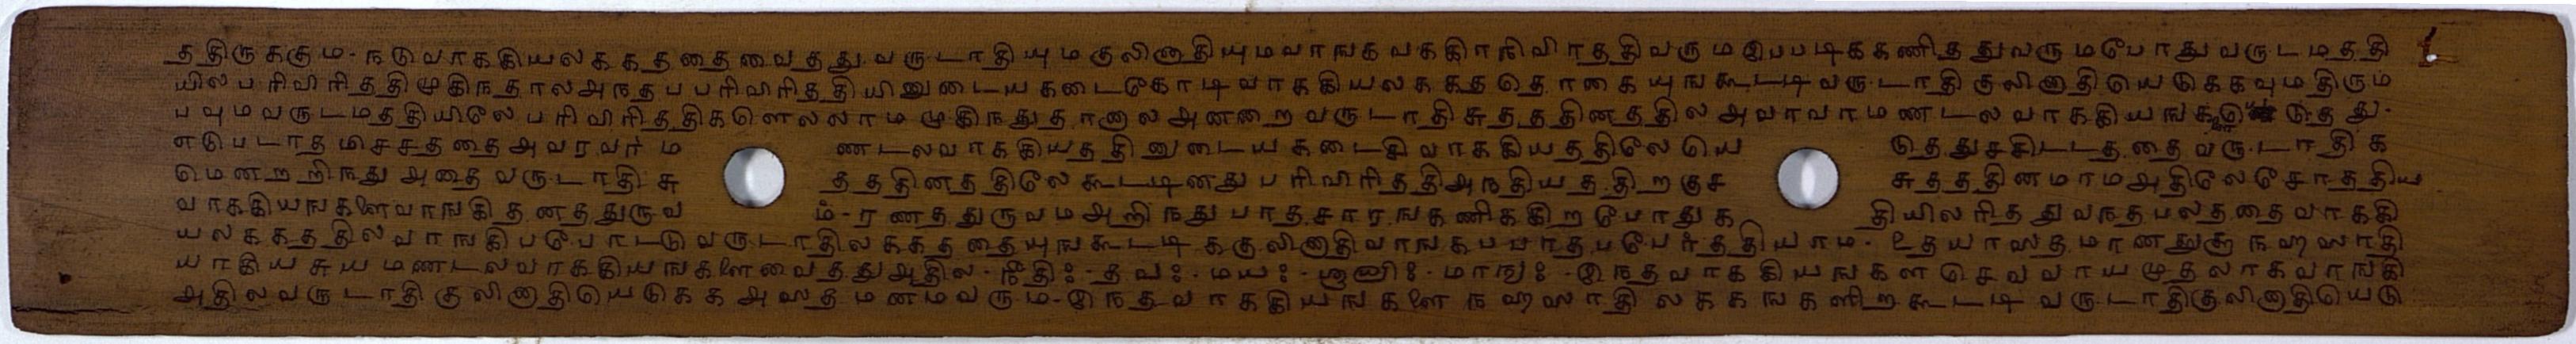 ததிருககும-நடுவாககியலகக தததைவைதது வருடாதியுமகுலினாதியுமவாஙக வககிராநிவிாததிவருமஇபபடிககணிததுவருமபோதுவருடமததி
யிலபரிவிரிததிமுகிநதாலஅநதபபரிவிரிததியினுடையகடைகோடிவாககியலகக தததொகையுஙகூடடிவருடாதிகுலினாதியெடுககவுமதிரும
பவுமவருடமததியிலேபரிவிரிததிகளெலலாமமுகிநதுதானால அனறைவருடாதிசுததததினததிலஅவாவாமணடலவாககியஙகளெடுதது-
எடுபடாதமிசசததைஅவரவர் ம ணடலவாககியததினுடையகடைசிவாககியததிலேயெ டுததுசசிடடததைவருடாதிக
மெனறறிநதுஅதைவருடாதிசு ததததினததிலேகூடடினதுபரிவிரிததிஅநதியததிறகுச சுதததினமாமஅதிலேசோததிய
வாககியஙகளைவாஙகிதனததுருவ ம்-ரணததுருவமஅறிநதுபாதசாரஙகணிககிறபோதுக தியிலரிததுவநதபலததைவாககி
யலககததிலவாஙகிபபோடடுவருடாதிலகக தததையுஙகூடடிககுலினாதிவாஙகபபாதபபேர்ததியாம-உதயாஸதமானததுகுநஹஸாதி
யாகியசுயமணடலவாககியஙகளைவைததுஅதில-நீதிஃ-தவஃ-மயஃ-ஞானிஃ-மாஙுஃ-இநதவாககியஙகளசெவவாயமுதலாகவாஙகி
அதிலவருடாதிகுலினாதியெடுககஅஸதமனமவரும-இநதவாககியஙகளைநஹஸாதிலககஙகளிறகூடடிவருடாதிகுலினாதியெடு